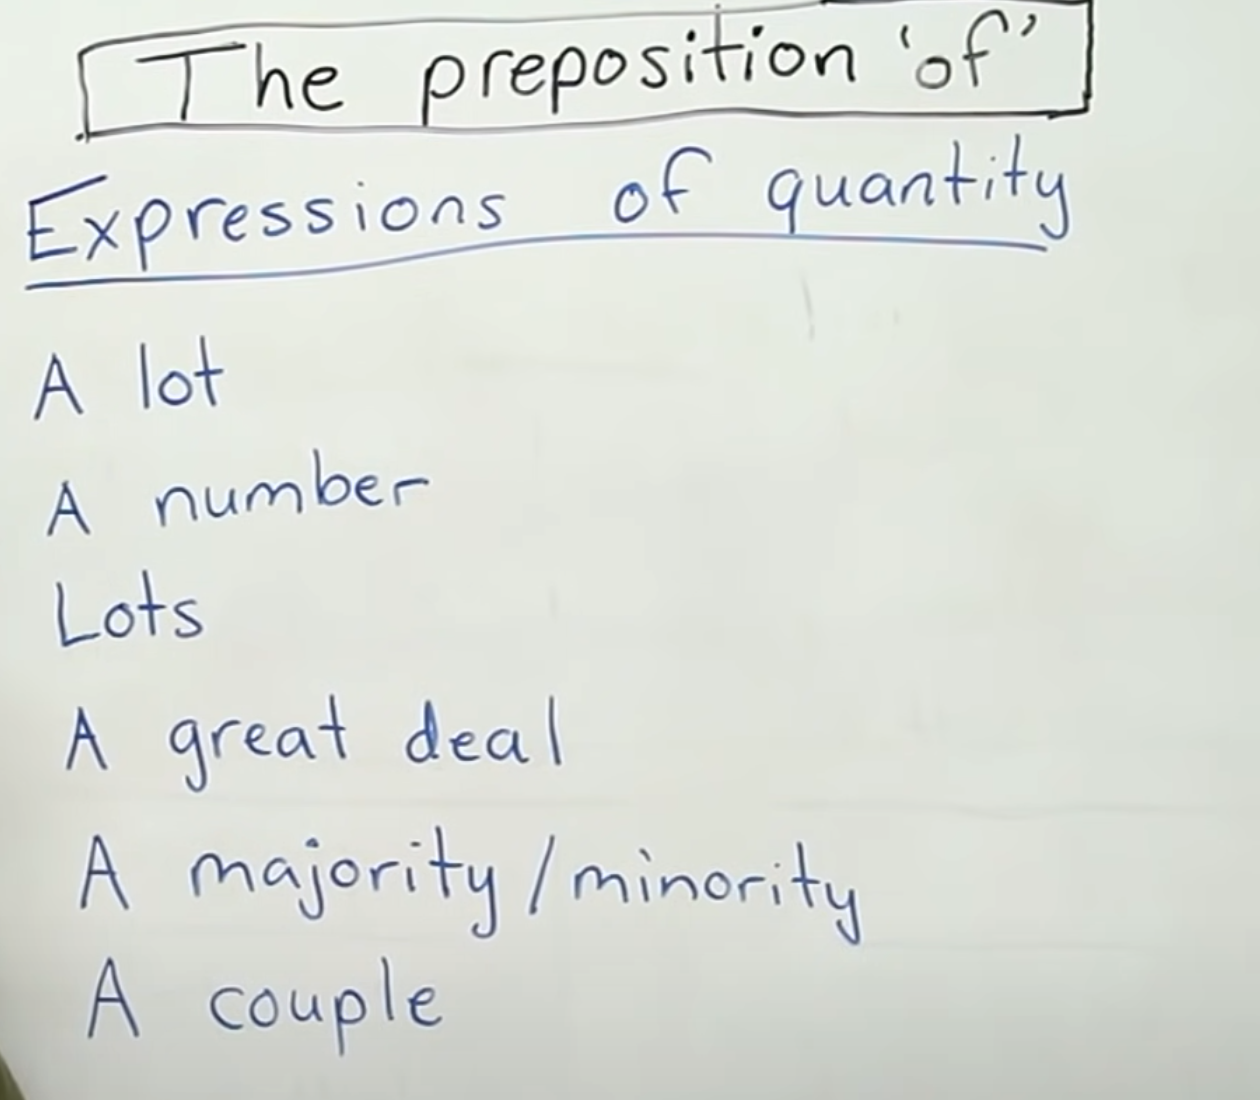 The preposition 'of'
Expressions of quantity
A lot
A number
Lots
A great deal
A majority/minority
A couple